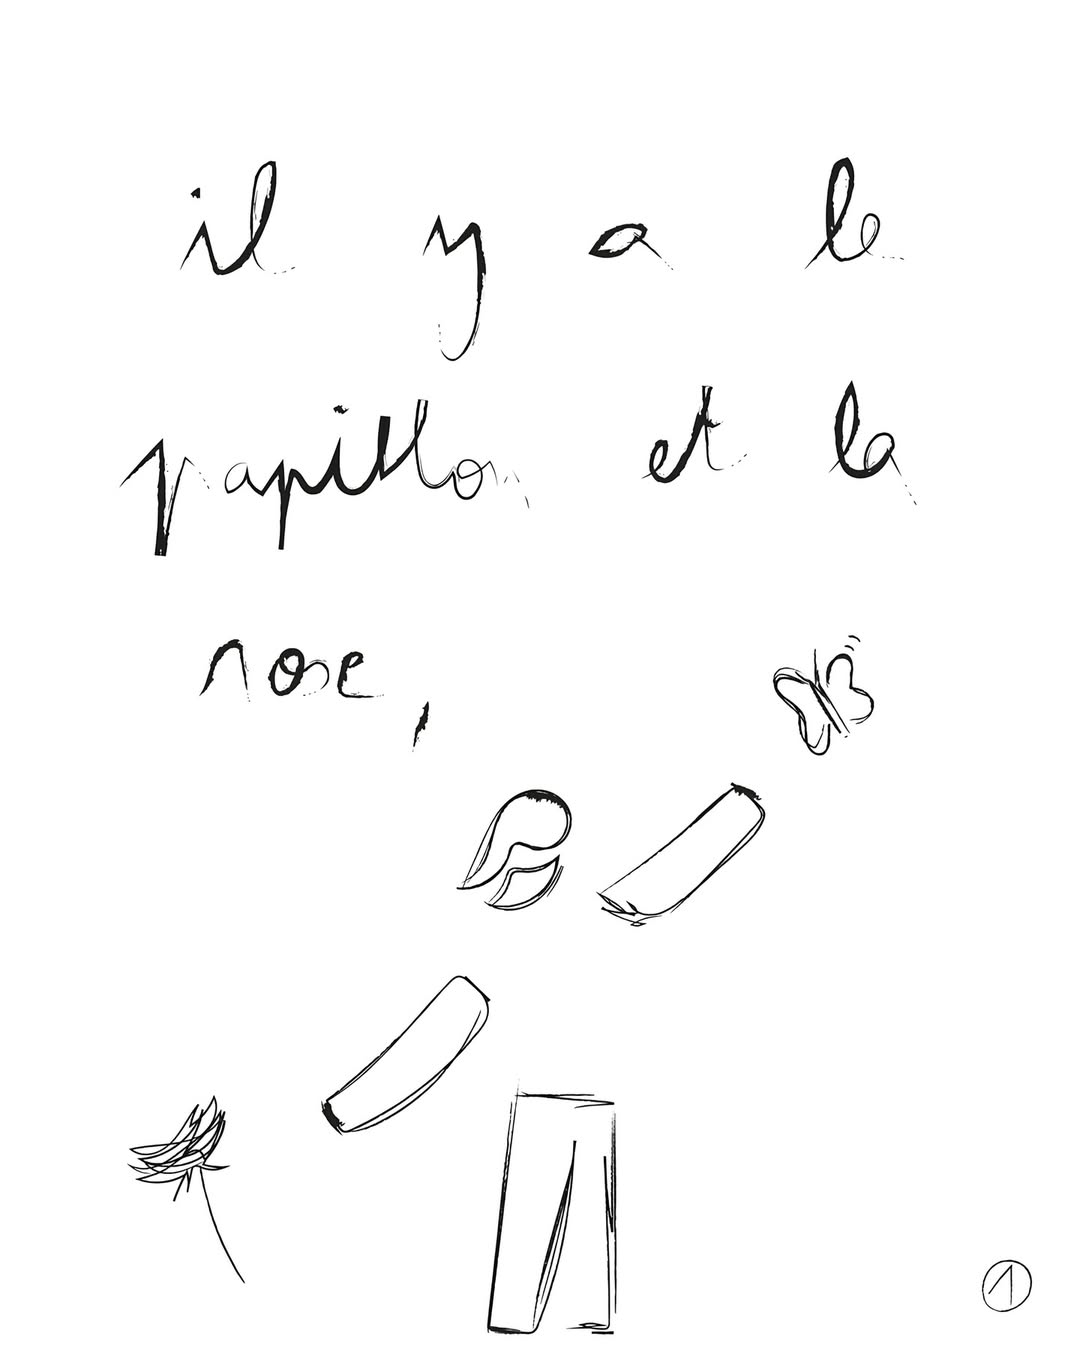 il y a le
papillon et la
rose,
1